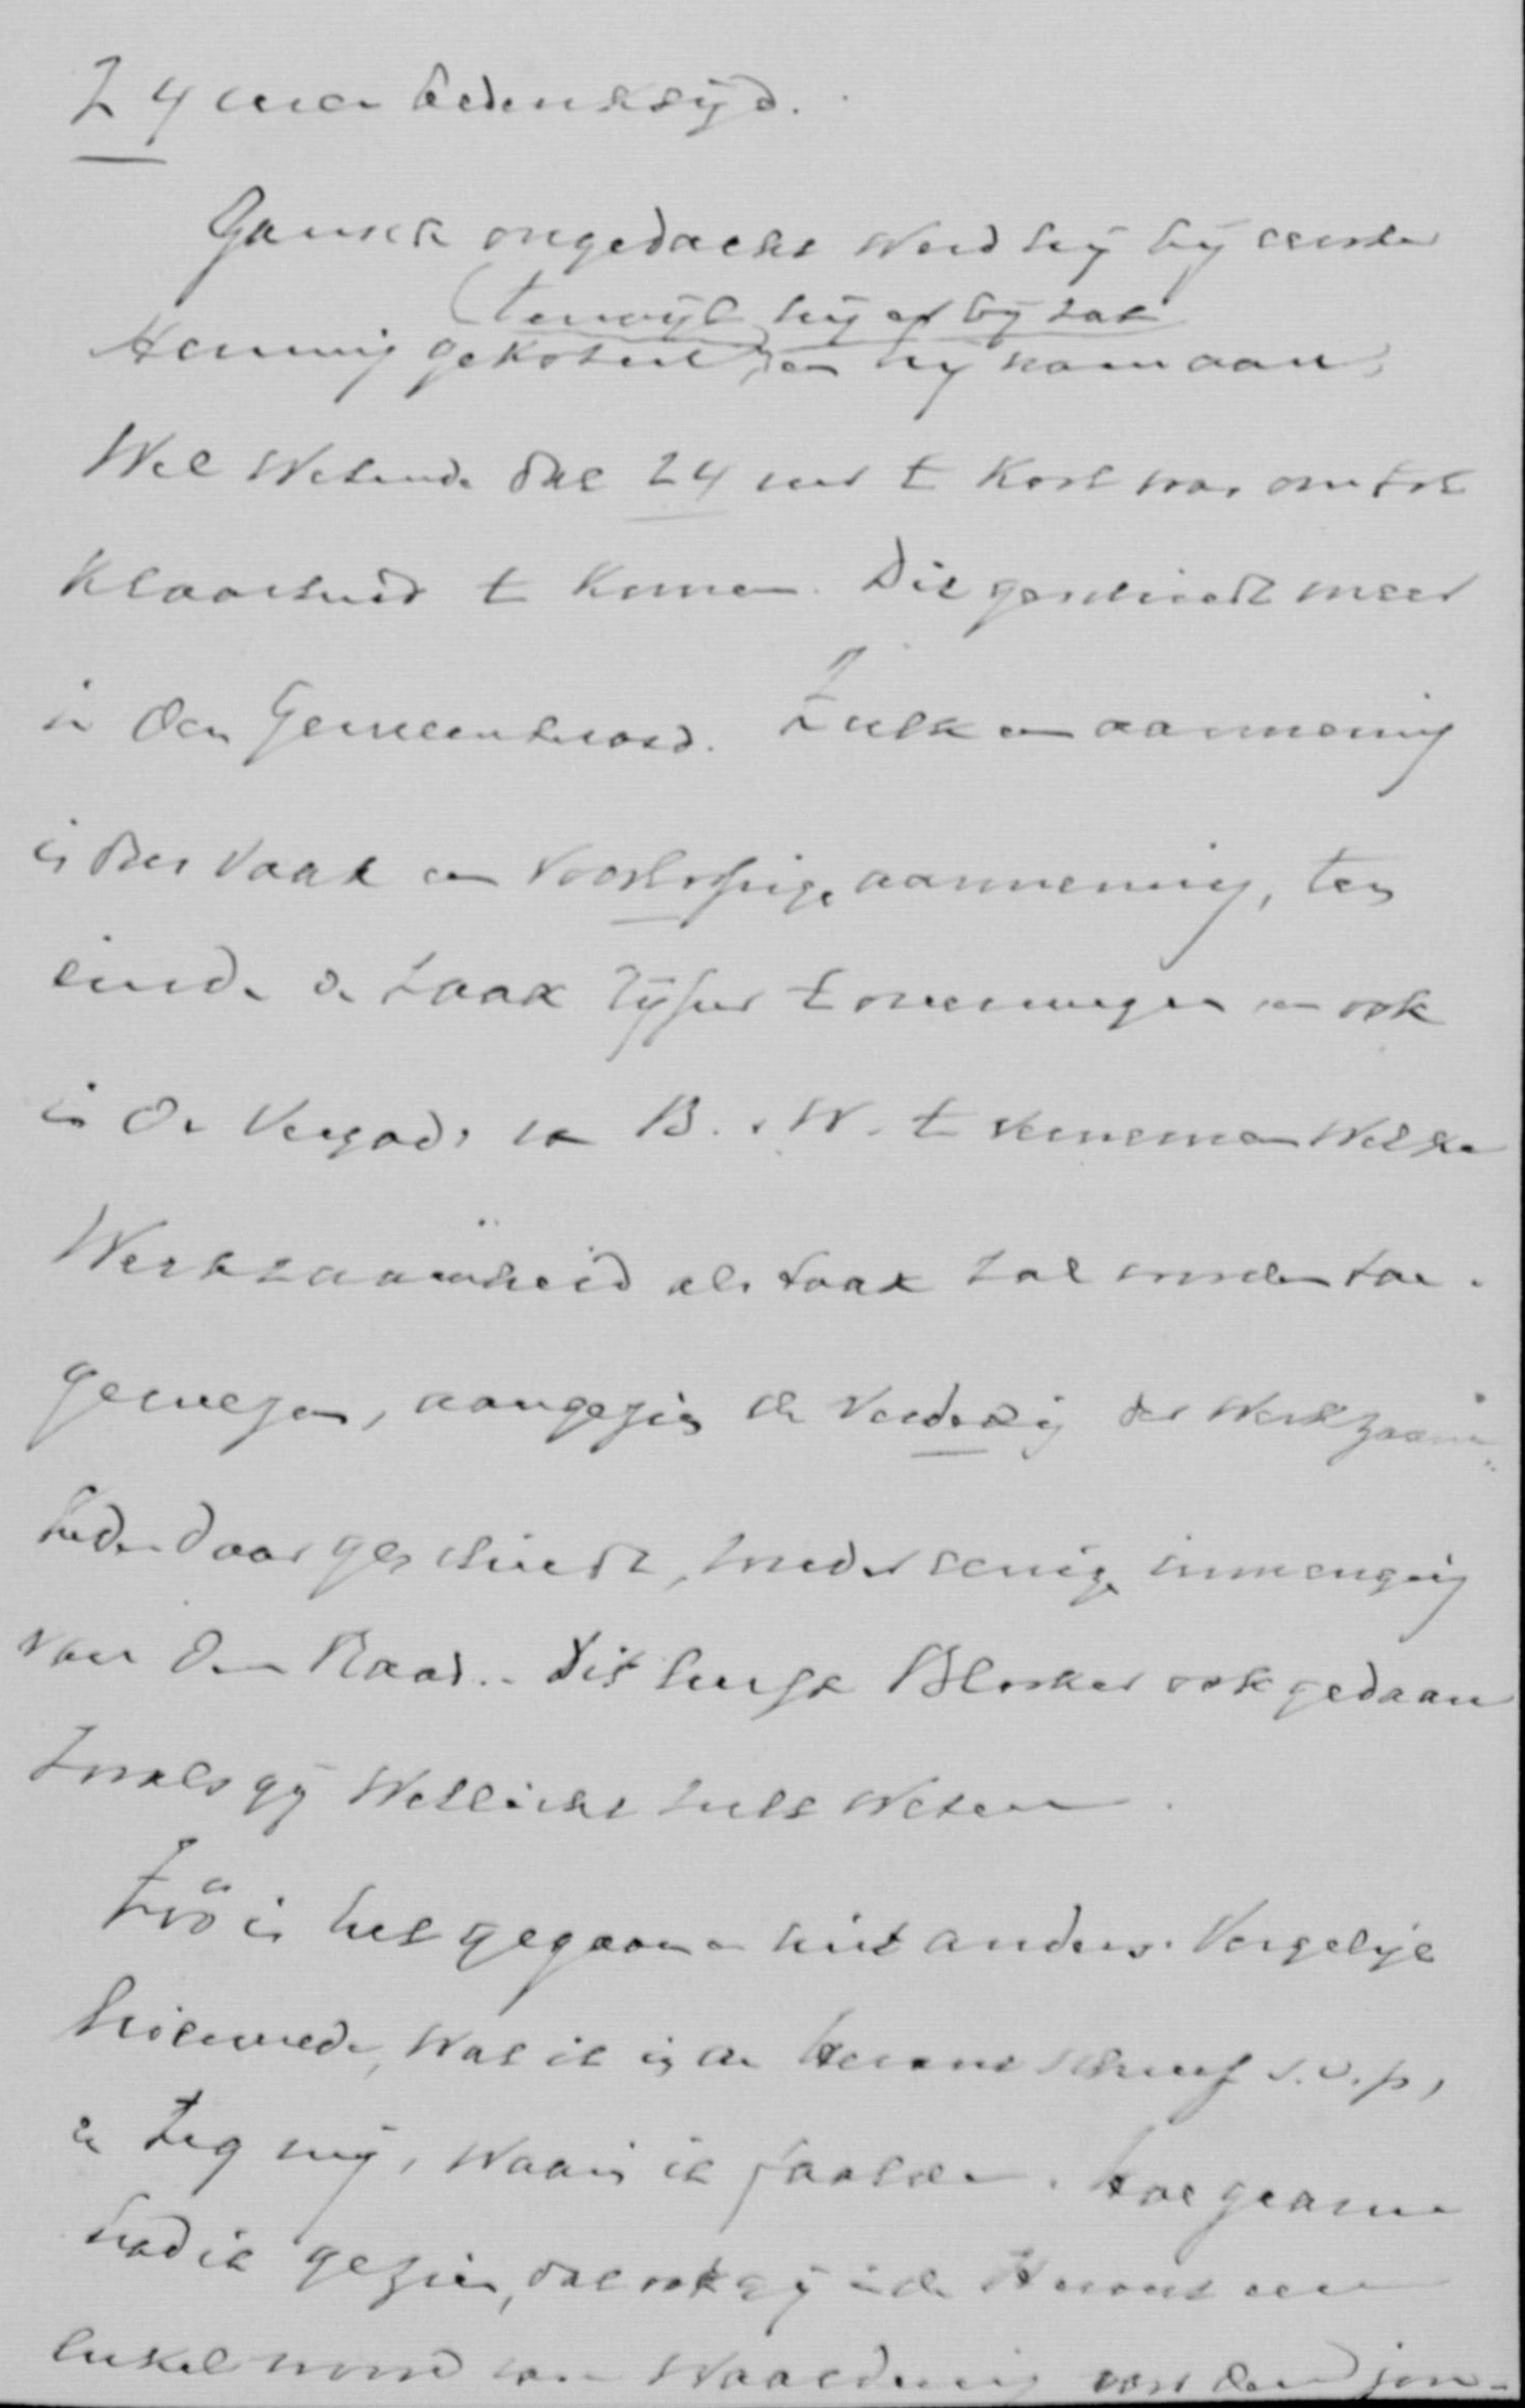 24 uur bedenktijd.
Gansch ongedacht werd hij bij eerste
(terwijl hij er bij zat)
stemming gekozen, en hij nam aan,
Wel wetende dat 24 uur te kort was om tot
klaarheid te komen. Dit geschiedt meer
in den Gemeenteraad. Zulk een aanneming
is dus vaak een voorloopige aanneming, ten
einde de zaak rijper te overwegen en ook
in de Vergad. van B. & W. te vernemen welke
Werkzaamheid als taak zal worden toe-
gewezen, aangezien de verdeeling der werkzaam-
heden daar geschiedt, zonder eenige inmenging
van den Raad. Dit heeft Blooker ook gedaan
zooals gij wellicht zult weten.
Zóó is het gegaan en niet anders. Vergelijk
hiermede, wat ik in de Heraut schreef s.v.p.,
en zeg mij, waarin ik faalde. Hoe gaarne
had ik gezien, dat ook gij in de Heraut een
enkel woord van waardeering voor den jon-